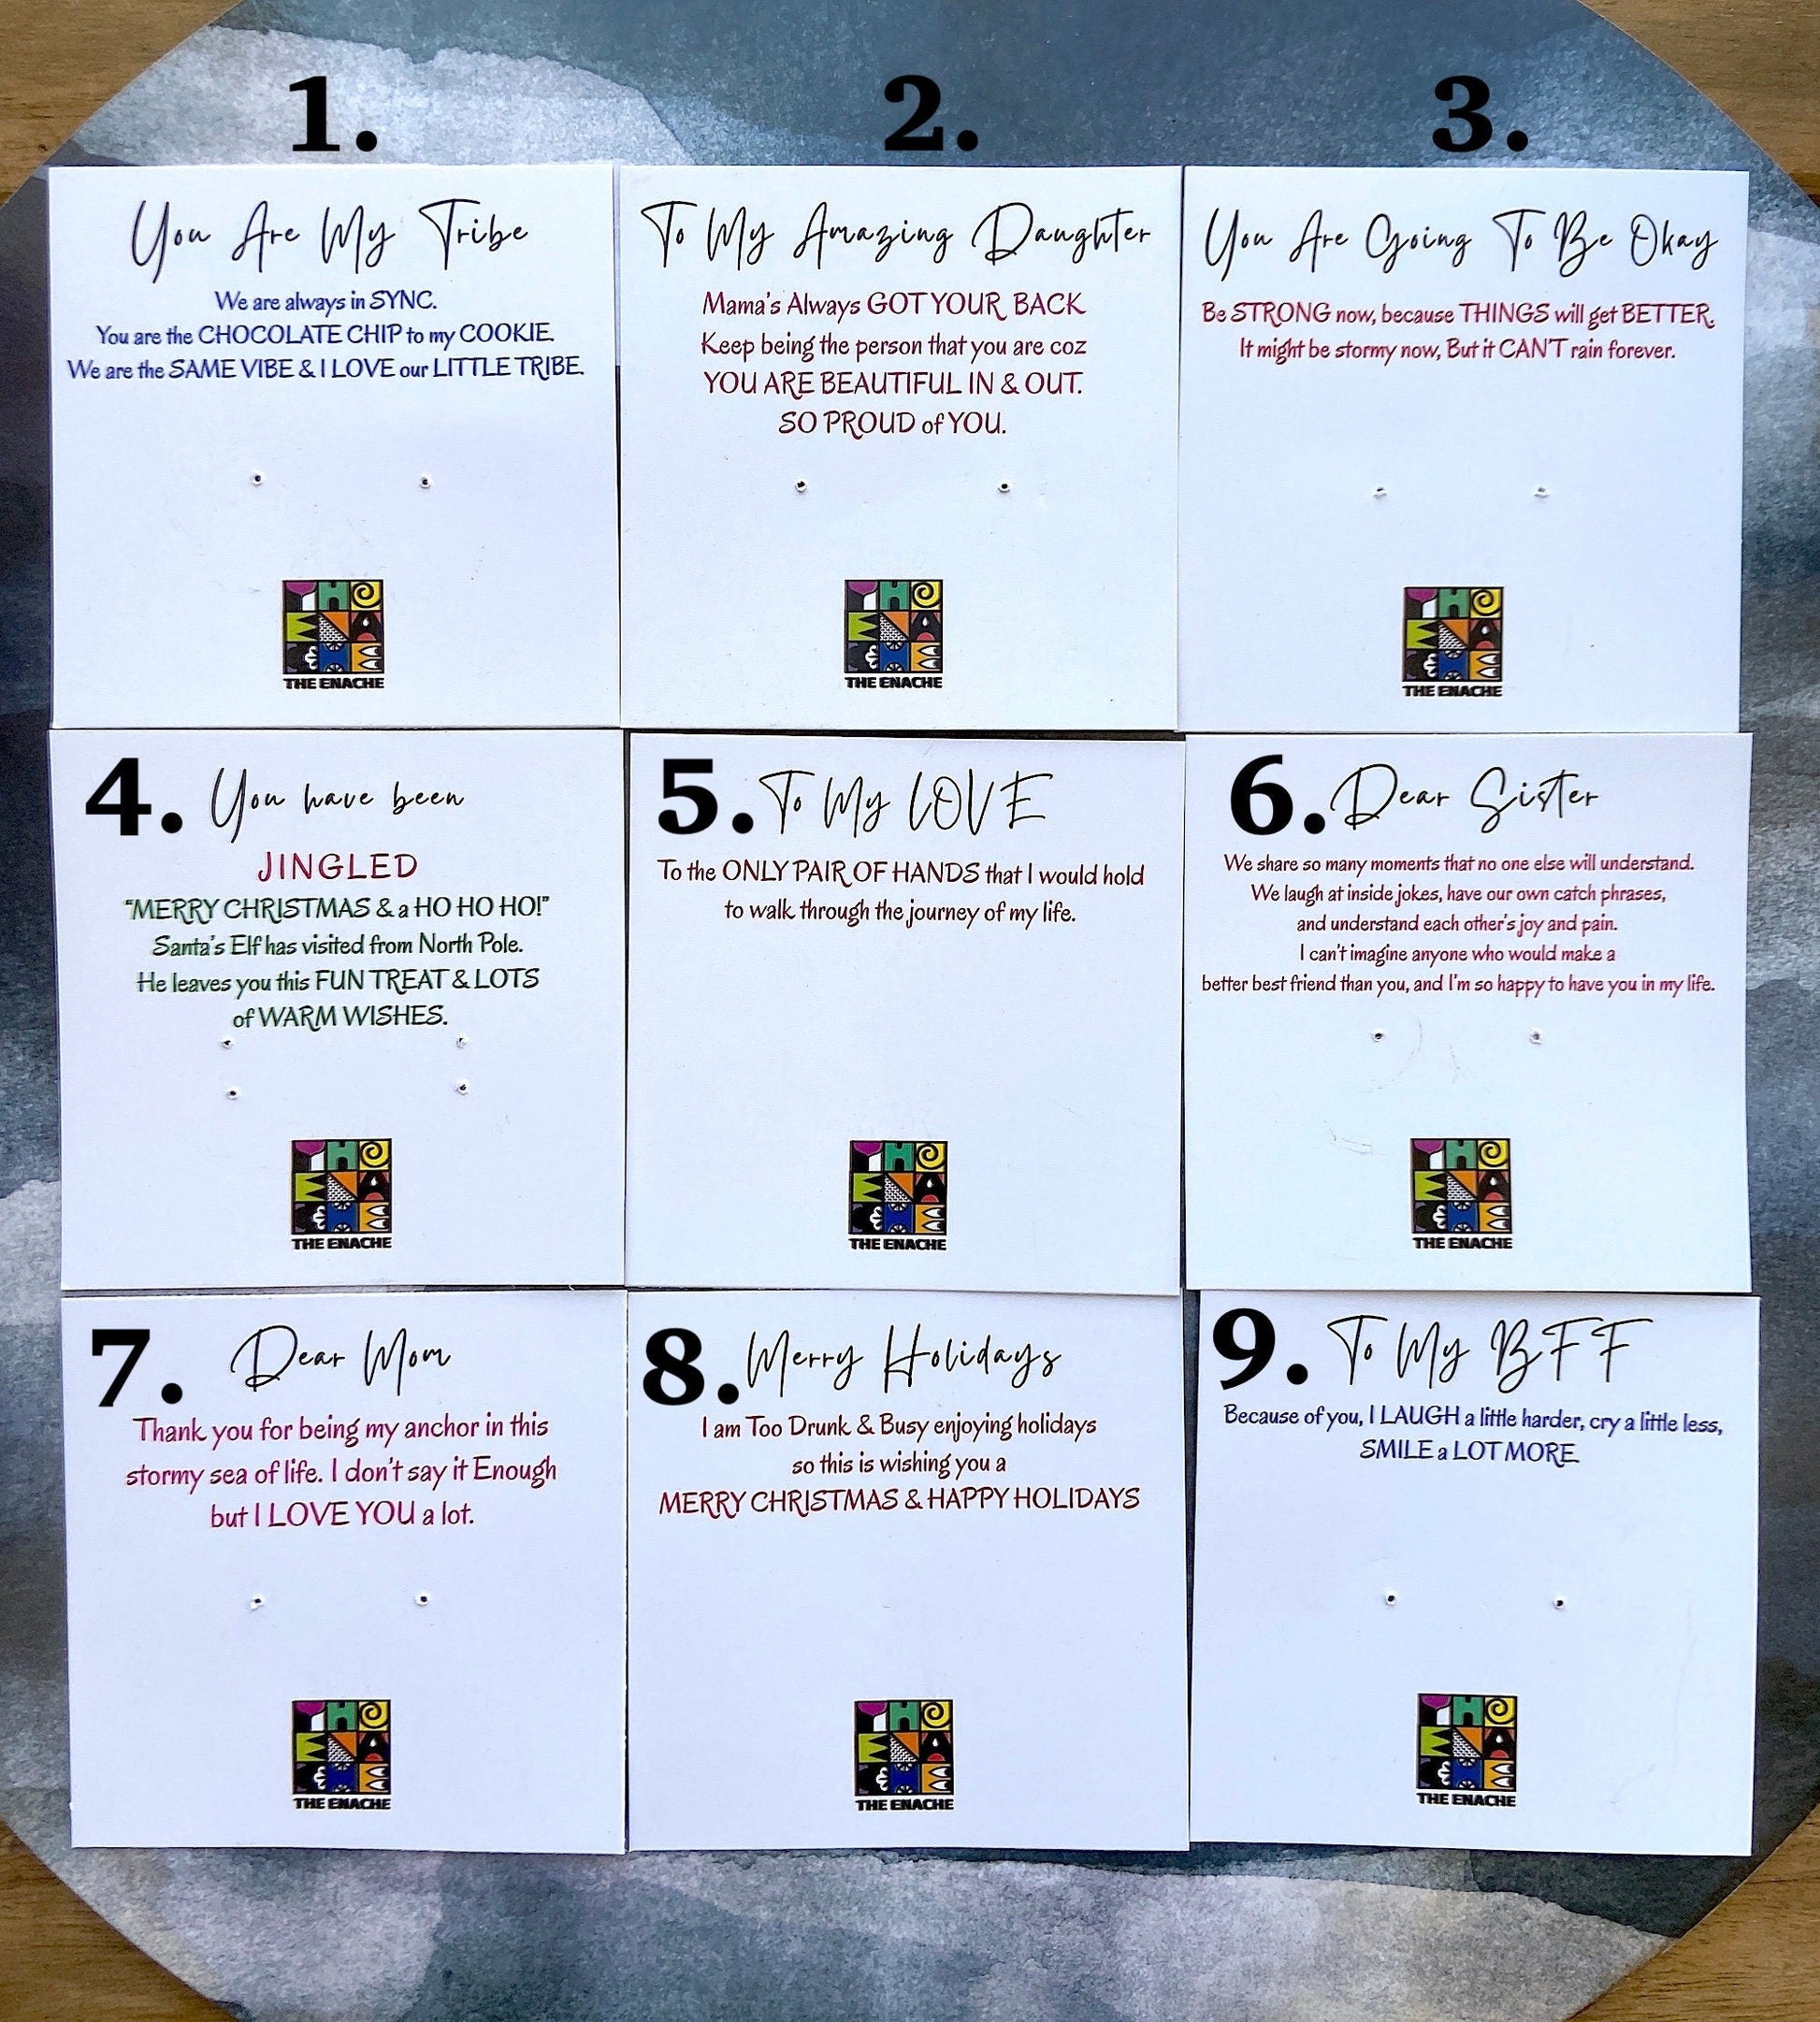 1.
You Are My Tribe
We are always in SYNC.
You are the CHOCOLATE CHIP to my COOKIE.
We are the SAME VIBE & I LOVE our LITTLE TRIBE.
THE ENACHE
THE ENACHE
2.
To My Amazing Daughter
Mama's Always GOT YOUR BACK
Keep being the person that you are coz
YOU ARE BEAUTIFUL IN & OUT.
SO PROUD of YOU.
THE ENACHE
THE ENACHE
3.
You Are Going To Be Okay
Be STRONG now, because THINGS will get BETTER.
It might be stormy now, But it CAN'T rain forever.
THE ENACHE
THE ENACHE
4.
You have been
JINGLED
"MERRY CHRISTMAS & a HO HO HO!"
Santa's Elf has visited from North Pole.
He leaves you this FUN TREAT & LOTS
of WARM WISHES.
THE ENACHE
THE ENACHE
5.
To My LOVE
To the ONLY PAIR OF HANDS that I would hold
to walk through the journey of my life.
THE ENACHE
THE ENACHE
6.
Dear Sister
We share so many moments that no one else will understand.
We laugh at inside jokes, have our own catch phrases,
and understand each other's joy and pain.
I can't imagine anyone who would make a
better best friend than you, and I'm so happy to have you in my life.
THE ENACHE
THE ENACHE
7.
Dear Mom
Thank you for being my anchor in this
stormy sea of life. I don't say it Enough
but I LOVE YOU a lot.
THE ENACHE
THE ENACHE
8.
Merry Holidays
I am Too Drunk & Busy enjoying holidays
so this is wishing you a
MERRY CHRISTMAS & HAPPY HOLIDAYS
THE ENACHE
THE ENACHE
9.
To My BFF
Because of you, I LAUGH a little harder, cry a little less,
SMILE a LOT MORE.
THE ENACHE
THE ENACHE